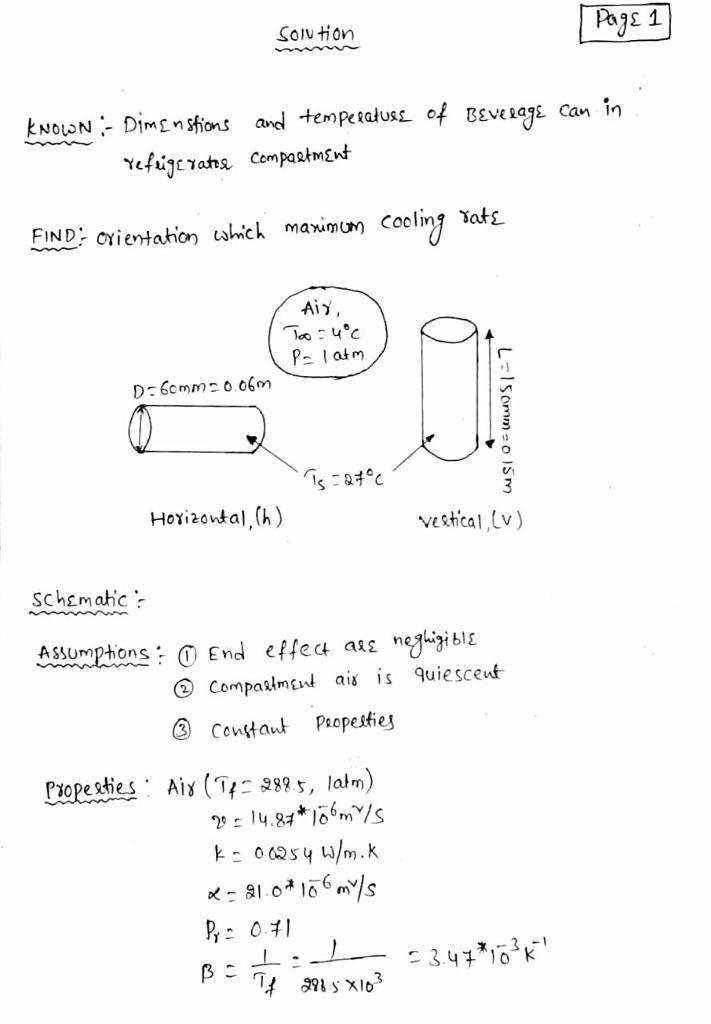 Solution
Page 1
KNOWN :- Dimenstions and temperature of Beverage can in
refrigerator compartment
FIND :- orientation which maximum cooling rate
Air,
T∞ = 4°C
P = 1 atm
D = 60mm = 0.06m
L = 150mm = 0.15m
Ts = 27°C
Horizontal, (h)
vertical, (v)
Schematic :-
Assumptions : ① End effect are neghigible
② Compartment air is quiescent
③ Constant Properties
Properties : Air (Tf = 288.5, 1atm)
ν = 14.87*10⁻⁶ m²/s
k = 0.0254 W/m.k
α = 21.0*10⁻⁶ m²/s
Pr = 0.71
β = 1/Tf = 1/288.5×10³ = 3.47*10⁻³ K⁻¹